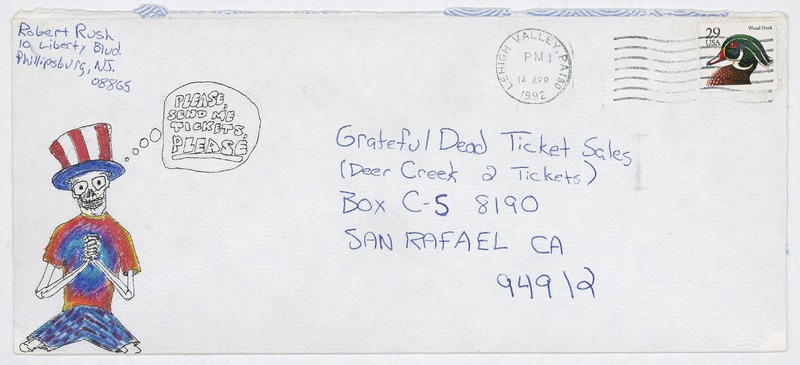 Robert Rush
10 Liberty Blvd
Phillipsburg, NJ.
08865
PLEASE,
SEND ME
TICKETS,
PLEASE
LEHIGH VALLEY, PA 180
PM
14 APR
1992
29
USA
Wood Duck
Grateful Dead Ticket Sales
(Deer Creek 2 Tickets)
BOX C-S 8190
SAN RAFAEL CA
94912